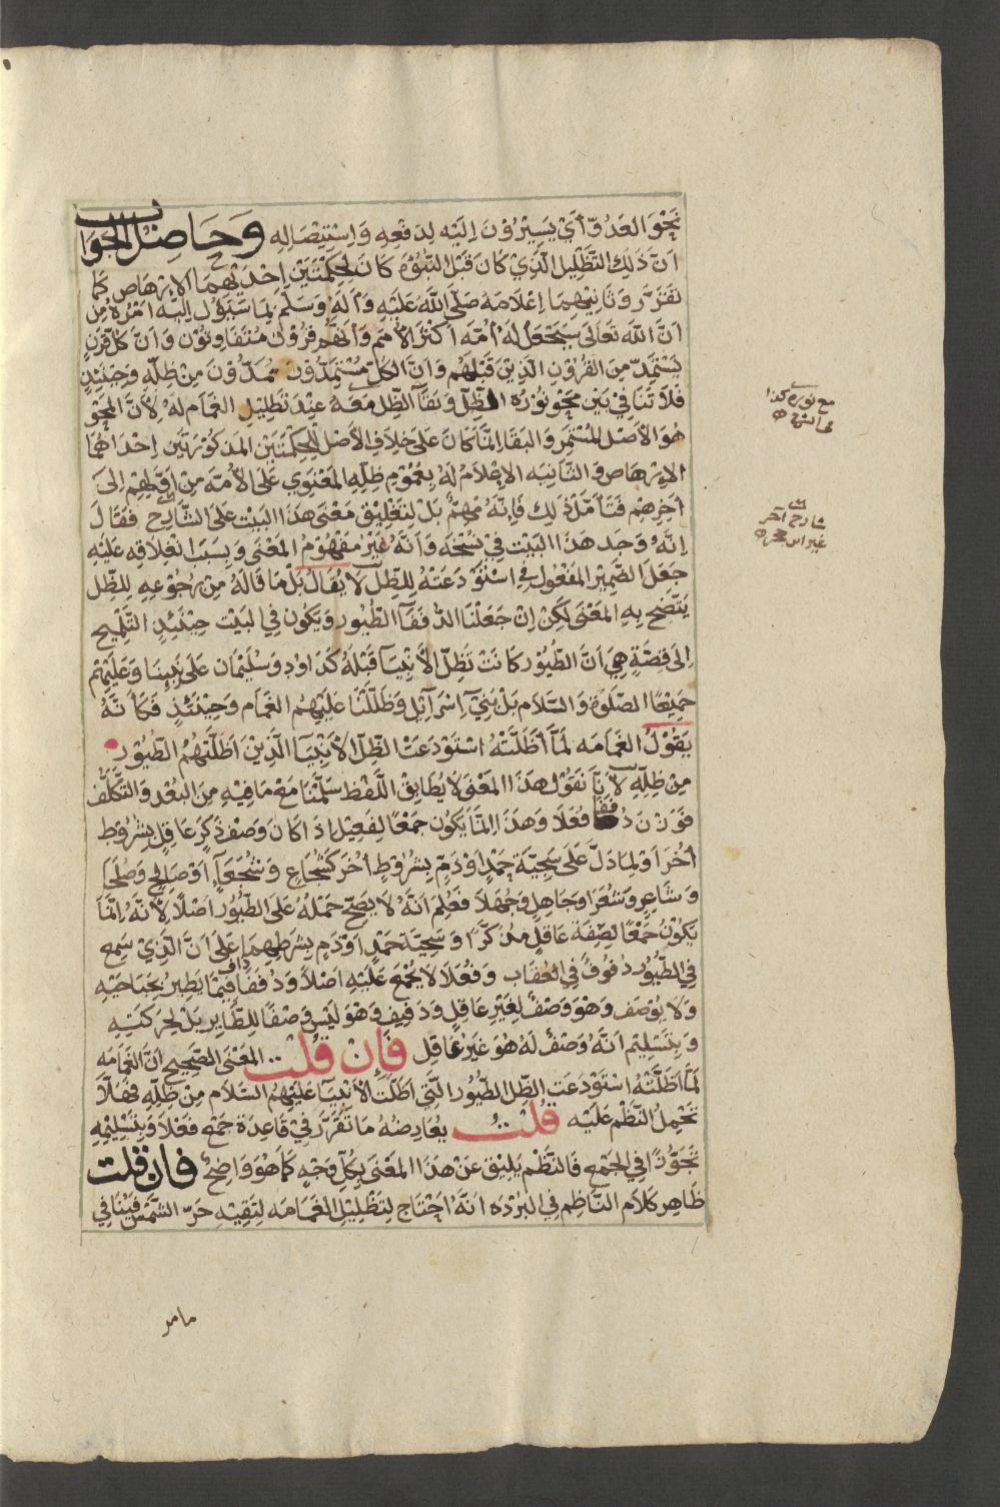 نَحْوَ العَدُوّ أيْ يَسِيْرُوْنَ اِلَيْهِ لِدَفْعِهِ وَاِسْتِيْصَالِهِ وَحَاصِلُ الجَوَاب
اَنّ ذَلِكَ التَّظْلِيلَ الَّذِيْ كَانَ قَبْلَ النُّبُوَّةِ كَانَ لِحِكْمَتَيْنِ اِحْدَيْهُمَا الاِرْهَاص كَمَا
تَقَرَّرَ وَثَانِيْهِمَا اِعْلَامَهُ صَلَّى اللَّه عَلَيْهِ وَآلِهِ وَسَلَّمْ بِمَا سَيَؤُلُ اِلَيْهِ اَمْرُهُ مِنْ
اَنَّ اللَّه تَعَالَى سَيَجْعَلُ لَهُ اُمّةً اَكْثَرَ الاُمَمِ وَاَنّهُمْ قرُوْن مُتَفَاوِتُوْن وَاَنّ كُلَّ قَرْنٍ
يَسْتَمِدُّ مِنَ القُرُوْنِ الَّذِيْنَ قَبْلَهُمْ وَاَنَّ الكُلَّ مُسْتَمِدُّوْنَ مُمَدُّوْنَ مِنْ ظِلِّهِ وَحِيْنَئِذٍ
فَلَا تَنَافِيْ بَيْنَ مَحْوِ نُوْرِهِ الظِّلَّ وَبَقَآ الظِّلّ مَعَهُ عِنْدَ تَظْلِيْلِ الغَمَام لَهُ لِاَنّ المَحْوَ
هُوَ الاَصْل المُسْتَمِرّ وَالبَقَآ اِنَّمَا كَانَ عَلَى خِلَافِ الاَصْلِ لِلْحِكْمَتَيْنِ المَذكُوْرَتَيْنِ اِحْدَاهُمَا
الاِرْهَاص وَالثَّانِيَه الاِعْلَامُ لَهُ بِعُمُوْمِ ظِلِّهِ المَعْنَوِي عَلَى الاُمّة مِنْ اَوَّلِهِمْ اِلَى
آخِرِهِمْ فَتَأَمَّلْ ذَلِكَ فَاِنَّهُ مُهِمٌّ بَلْ لِتَغْلِيْقِ مَعْنَى هَذَا البَيْتِ عَلَى الشَّارِح فَقَالَ
اِنَّهُ وَجَدَ هَذَا البَيْتَ فِيْ نُسْخَه وَاَنّهُ غَيْرُ مَفْهُوْمِ المَعْنَى وَبِسَبَبِ انْغِلَاقِهِ عَلَيْهِ
جَعَلَ الضَّمِيْرَ المَفْعُولَ فِي اسْتَوْدَعَتْهُ لِلظِّلّ لَا يُقَالُ بَلْ مَا قَالَهُ مِنْ رُجُوْعِهِ لِلظِّل
يَتَّضِح بِهِ المَعْنَى لَكِنْ اِنْ جَعَلْنَا الدُّفَفَآ الطُّيُور وَيَكُون فِي البَيْت حِيْنَئِذٍ التَّلْمِيْح
اِلَى قِصَّةٍ هِيَ اَنّ الطُّيُوْرَ كَانَتْ تَظِلّ الاَنْبِيَآ قَبْلَهُ كَدَاوُد وَسُلَيْمَان عَلَى نَبِيِّنَا وَعَلَيْهِمْ
جَمِيْعًا الصَّلَوةُ وَالسَّلَام بَلْ بَنِيْٓ اِسْرَآئِلَ وَظَلَّلْنَا عَلَيْهِمُ الغَمَام وَحِيْنَئذٍ فَكَأَنَّهُ
يَقُوْلُ الغَمَامَه لَمَّآ أظَلَّتْهُ اسْتَوْدَعَتْ الظِّل الاَنْبِيَآ الَّذِيْنَ اَظَلَّتْهُمُ الطُّيُوْر
مِنْ ظِلِّهِ لاَنَّا نَقُوْل هَذَا المَعْنَى لَا يُطَابِق اللَّفْظ سَلَّمْنَا مَعَ مَا فِيْهِ مِنَ البُعْدِ وَالتَّكَلُّف
فَوَزْن دُفَفَآ فُعَلَا وَهَذَا اِنَّمَا يَكُون جَمْعًا لِفَعِيْل اِذَا كَانَ وَصْفَ ذَكَرٍ عَاقِلٍ بِشُرُوْط
اُخْرَ اَوْ لِمَا دَلَّ عَلَى سَجِيَّة حَمْدٍ اَوْ ذَمٍّ بِشُرُوْطٍ اُخْرَ كَشُجَاعٍ وَشُجَعَآءَ اَوْ صَالِحٍ وَصُلَحَا
وَشَاعِرٍ وَشُعَرَا وَجَاهِلٍ وَجُهَلَا فَعُلِمَ اَنّهُ لَا يَصِحّ حَمْلُهُ عَلَى الطُّيُوْر اَصْلًا لِاَنّهُ اِنَّمَا
يَكُوْنُ جَمْعًا لِصِفَة عَاقِلٍ مذَكَّرٍ اَوْ سَجِيَّة حَمْدٍ اَوْ ذَمٍّ بِشَرطِهِمَا عَلَى اَنّ الَّذِيْ سَمِع
فِي الطُّيُوْر دُفُوفٌ فِي العُقَاب وَفُعَلَا لَا يُجْمَع عَلَيْهِ اَصْلًا وَدُفَفٌ فِيْمَا يَطِيْر بِجَنَاحَيْهِ
وَلَا يُوْصَف وَهْوَ وَصْفٌ لِغَيْرِ عَاقِلٍ وَدَفِيف وَهْوَ لَيْسَ وَصْفًا لِلطَّايِر بَلْ لِحَرَكَتِهِ
وَبِتَسْلِيْم اَنّهُ وَصْفٌ لَهُ هُوَ غَيْرُ عَاقِل فَإِن قُلْت المَعْنَى الصَّحِيْح اَنّ الغَمَامَه
لَمَّا اَظَلَّتْهُ اسْتَوْدَعَتِ الظّل الطُّيُوْر الَّتِيْ اَظَلَّت الاَنْبِيَآ عَلَيْهِمُ السَّلَام مِنْ ظِلِّهِ فَهَلَّا
تَحْمِل النَّظْم عَلَيْه قُلْتُ يُعَارِضُهُ مَا تَقَرَّرَ فِيْ قَاعِدَة جَمْعِ فُعَلَا وَبِتَسْلِيْمِهِ
تَجَوُّزًا فِي الجَمْع فَالنَّظْم يَلِيْق عَنْ هَذَا المَعْنَى بِكُلِّ وَجْهٍ كَمَا هُوَ وَاضِحٌ فَان قُلت
ظَاهِر كَلَامِ النَّاظِم فِي البُرْدَه اَنّهُ اِحْتَاج لِتَظْلِيْلِ الغَمَامَه لِتَقِيْهِ حَرّ الشَّمْس فَيُنَافِيْ
مع نوره كذا
شارح آخر
غير ابن حجر ه
مامر